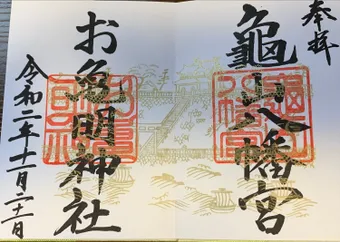 奉拝
龜山八幡宮
お亀明神社
令和二年十一月二十二日